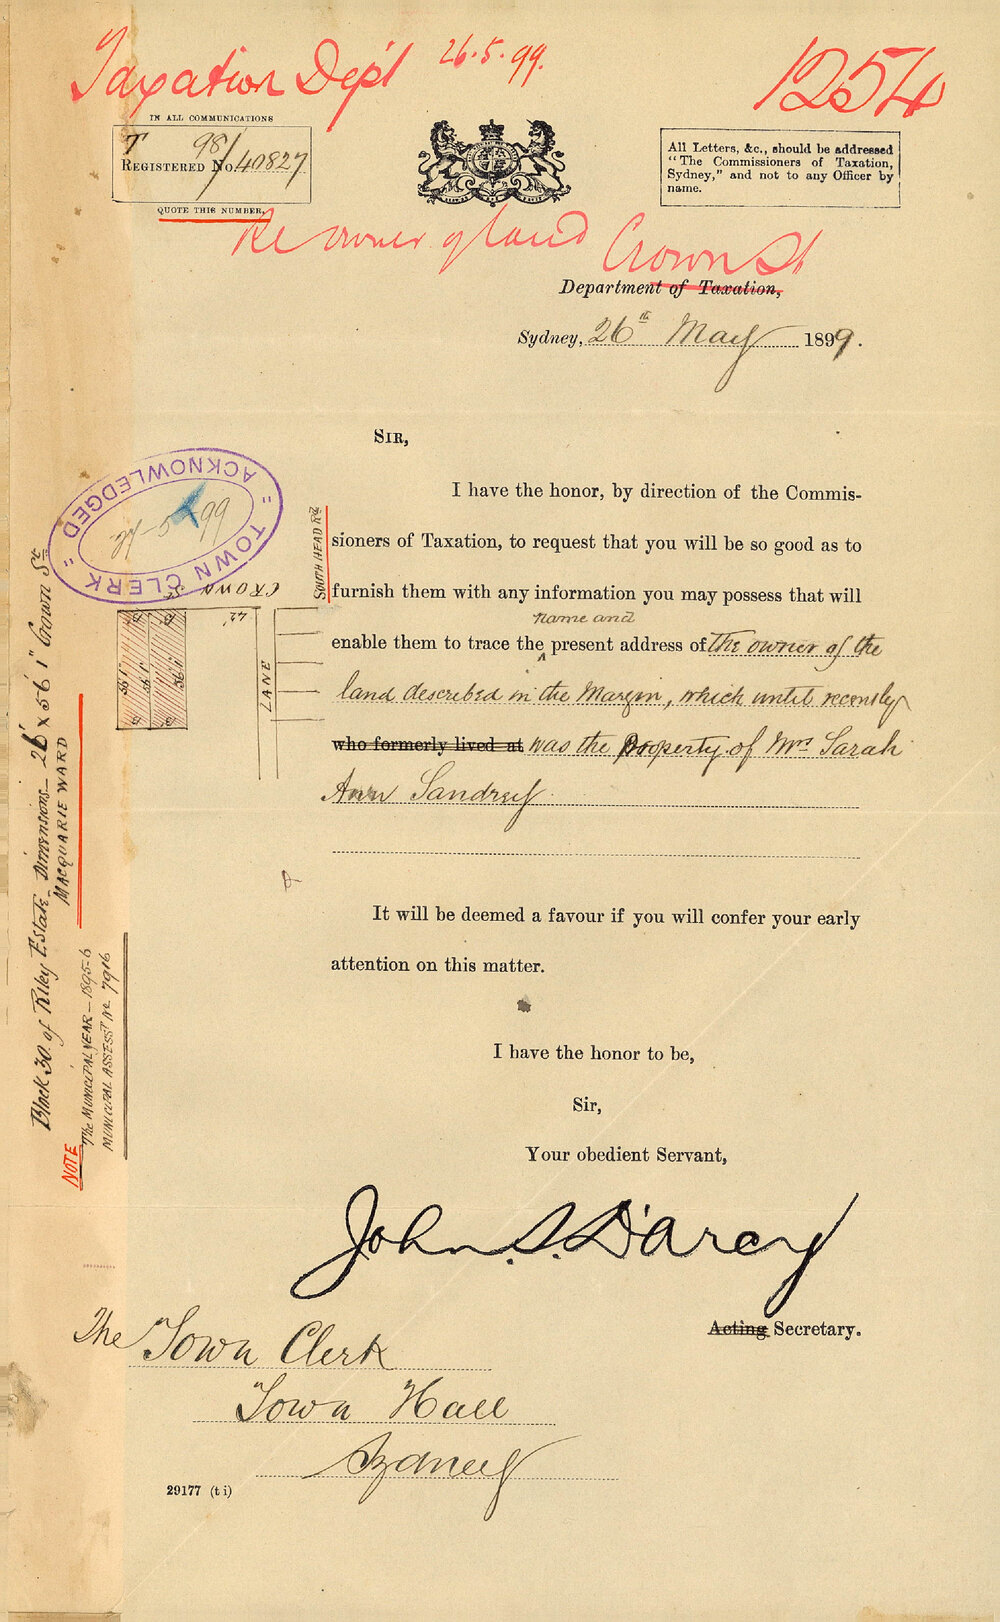 Taxation Dep't 26.5.99.
1254
IN ALL COMMUNICATIONS
T 98/40827
REGISTERED No.
QUOTE THIS NUMBER.
All Letters, &c., should be addressed
"The Commissioners of Taxation,
Sydney," and not to any Officer by
name.
Re owner of land Crown St
Department of Taxation,
Sydney, 26th May 1899.
SIR,
I have the honor, by direction of the Commis-
sioners of Taxation, to request that you will be so good as to
furnish them with any information you may possess that will
name and
enable them to trace the present address of the owner of the
land described in the Margin, which until recently
who formerly lived at was the Property of Mrs Sarah
Ann Sandrey
It will be deemed a favour if you will confer your early
attention on this matter.
I have the honor to be,
Sir,
Your obedient Servant,
John S. D'Arcy
Acting Secretary.
The Town Clerk
Town Hall
Sydney
29177 (t i)
TOWN CLERK
ACKNOWLEDGED
27-5-99
SOUTH HEAD Rd
CROWN St
LANE
42'
56' 1"
56' 1"
56' 1"
B
B
B
B
Block 30 of Riley Estate - Dimensions - 26' x 56' 1" Crown St
MACQUARIE WARD
NOTE
The MUNICIPAL YEAR - 1895-6
MUNICIPAL ASSESST No 7916